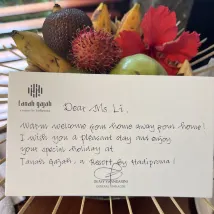 tanah gajah
Dear Ms. Li,
Warm welcome your home away from home!
I wish you a pleasant day and enjoy
your special holiday at
Tanah Gajah, a Resort by Hadiprana!